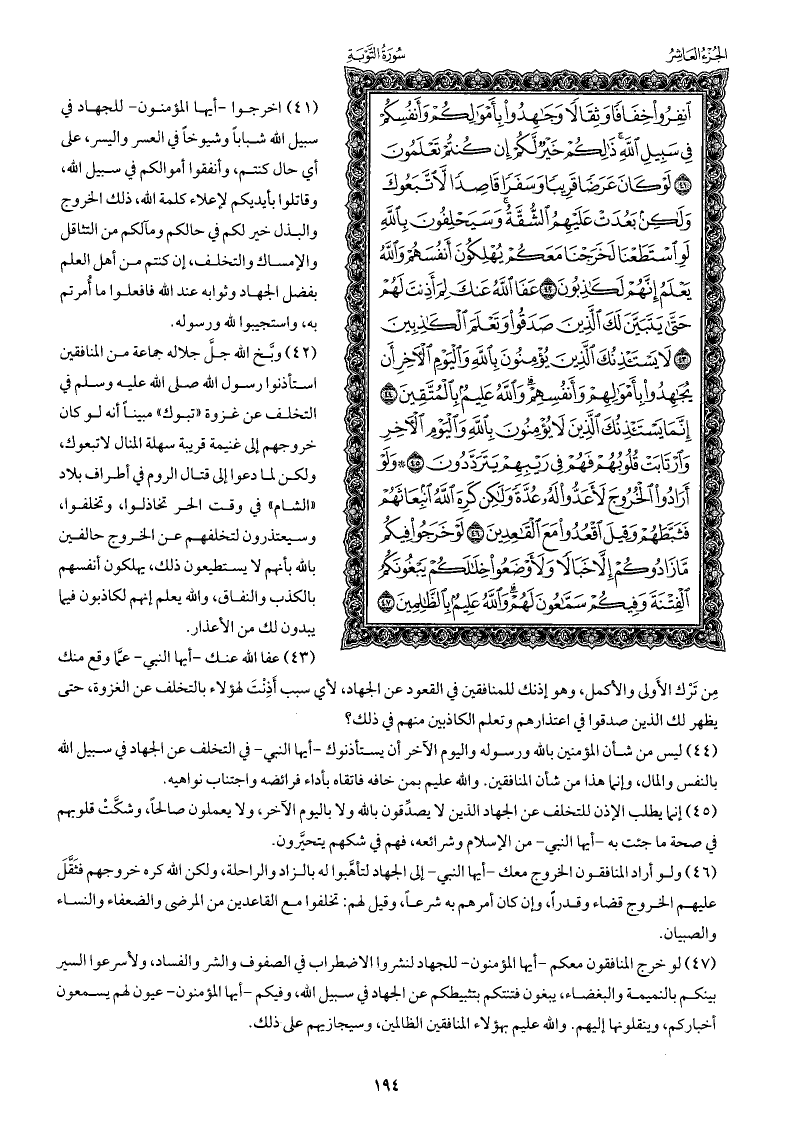 الجزء العاشر
سورة التوبة
انفِرُوا خِفَافًا وَثِقَالًا وَجَاهِدُوا بِأَمْوَالِكُمْ وَأَنفُسِكُمْ
فِي سَبِيلِ اللَّهِ ۚ ذَٰلِكُمْ خَيْرٌ لَّكُمْ إِن كُنتُمْ تَعْلَمُونَ
﴿٤١﴾ لَوْ كَانَ عَرَضًا قَرِيبًا وَسَفَرًا قَاصِدًا لَّاتَّبَعُوكَ
وَلَٰكِن بَعُدَتْ عَلَيْهِمُ الشُّقَّةُ ۚ وَسَيَحْلِفُونَ بِاللَّهِ
لَوِ اسْتَطَعْنَا لَخَرَجْنَا مَعَكُمْ يُهْلِكُونَ أَنفُسَهُمْ وَاللَّهُ
يَعْلَمُ إِنَّهُمْ لَكَاذِبُونَ ﴿٤٢﴾ عَفَا اللَّهُ عَنكَ لِمَ أَذِنتَ لَهُمْ
حَتَّىٰ يَتَبَيَّنَ لَكَ الَّذِينَ صَدَقُوا وَتَعْلَمَ الْكَاذِبِينَ
﴿٤٣﴾ لَا يَسْتَئْذِنُكَ الَّذِينَ يُؤْمِنُونَ بِاللَّهِ وَالْيَوْمِ الْآخِرِ أَن
يُجَاهِدُوا بِأَمْوَالِهِمْ وَأَنفُسِهِمْ ۗ وَاللَّهُ عَلِيمٌ بِالْمُتَّقِينَ ﴿٤٤﴾
إِنَّمَا يَسْتَئْذِنُكَ الَّذِينَ لَا يُؤْمِنُونَ بِاللَّهِ وَالْيَوْمِ الْآخِرِ
وَارْتَابَتْ قُلُوبُهُمْ فَهُمْ فِي رَيْبِهِمْ يَتَرَدَّدُونَ ﴿٤٥﴾ ۞ وَلَوْ
أَرَادُوا الْخُرُوجَ لَأَعَدُّوا لَهُ عُدَّةً وَلَٰكِن كَرِهَ اللَّهُ انبِعَاثَهُمْ
فَثَبَّطَهُمْ وَقِيلَ اقْعُدُوا مَعَ الْقَاعِدِينَ ﴿٤٦﴾ لَوْ خَرَجُوا فِيكُم
مَّا زَادُوكُمْ إِلَّا خَبَالًا وَلَأَوْضَعُوا خِلَالَكُمْ يَبْغُونَكُمُ
الْفِتْنَةَ وَفِيكُمْ سَمَّاعُونَ لَهُمْ ۗ وَاللَّهُ عَلِيمٌ بِالظَّالِمِينَ ﴿٤٧﴾
(٤١) اخرجوا -أيها المؤمنون- للجهاد في
سبيل الله شباباً وشيوخاً في العسر واليسر، على
أي حال كنتم، وأنفقوا أموالكم في سبيل الله،
وقاتلوا بأيديكم لإعلاء كلمة الله، ذلك الخروج
والبذل خير لكم في حالكم ومآلكم من التثاقل
والإمساك والتخلف، إن كنتم من أهل العلم
بفضل الجهاد وثوابه عند الله فافعلوا ما أُمرتم
به، واستجيبوا لله ورسوله.
(٤٢) وبَّخ الله جلَّ جلاله جماعة من المنافقين
استأذنوا رسول الله صلى الله عليه وسلم في
التخلف عن غزوة «تبوك» مبيناً أنه لو كان
خروجهم إلى غنيمة قريبة سهلة المنال لاتبعوك،
ولكن لما دعوا إلى قتال الروم في أطراف بلاد
«الشام» في وقت الحر تخاذلوا، وتخلفوا،
وسيعتذرون لتخلفهم عن الخروج حالفين
بالله بأنهم لا يستطيعون ذلك، يهلكون أنفسهم
بالكذب والنفاق، والله يعلم إنهم لكاذبون فيما
يبدون لك من الأعذار.
(٤٣) عفا الله عنك -أيها النبي- عمَّا وقع منك
مِن تَرْك الأَولى والأكمل، وهو إذنك للمنافقين في القعود عن الجهاد، لأي سبب أَذِنْتَ لهؤلاء بالتخلف عن الغزوة، حتى
يظهر لك الذين صدقوا في اعتذارهم وتعلم الكاذبين منهم في ذلك؟
(٤٤) ليس من شأن المؤمنين بالله ورسوله واليوم الآخر أن يستأذنوك -أيها النبي- في التخلف عن الجهاد في سبيل الله
بالنفس والمال، وإنما هذا من شأن المنافقين. والله عليم بمن خافه فاتقاه بأداء فرائضه واجتناب نواهيه.
(٤٥) إنما يطلب الإذن للتخلف عن الجهاد الذين لا يصدِّقون بالله ولا باليوم الآخر، ولا يعملون صالحاً، وشكَّتْ قلوبهم
في صحة ما جئت به -أيها النبي- من الإسلام وشرائعه، فهم في شكهم يتحيَّرون.
(٤٦) ولو أراد المنافقون الخروج معك -أيها النبي- إلى الجهاد لتأهَّبوا له بالزاد والراحلة، ولكن الله كره خروجهم فثَقَّلَ
عليهم الخروج قضاء وقدراً، وإن كان أمرهم به شرعاً، وقيل لهم: تخلفوا مع القاعدين من المرضى والضعفاء والنساء
والصبيان.
(٤٧) لو خرج المنافقون معكم -أيها المؤمنون- للجهاد لنشروا الاضطراب في الصفوف والشر والفساد، ولأسرعوا السير
بينكم بالنميمة والبغضاء، يبغون فتنتكم بتثبيطكم عن الجهاد في سبيل الله، وفيكم -أيها المؤمنون- عيون لهم يسمعون
أخباركم، وينقلونها إليهم. والله عليم بهؤلاء المنافقين الظالمين، وسيجازيهم على ذلك.
١٩٤